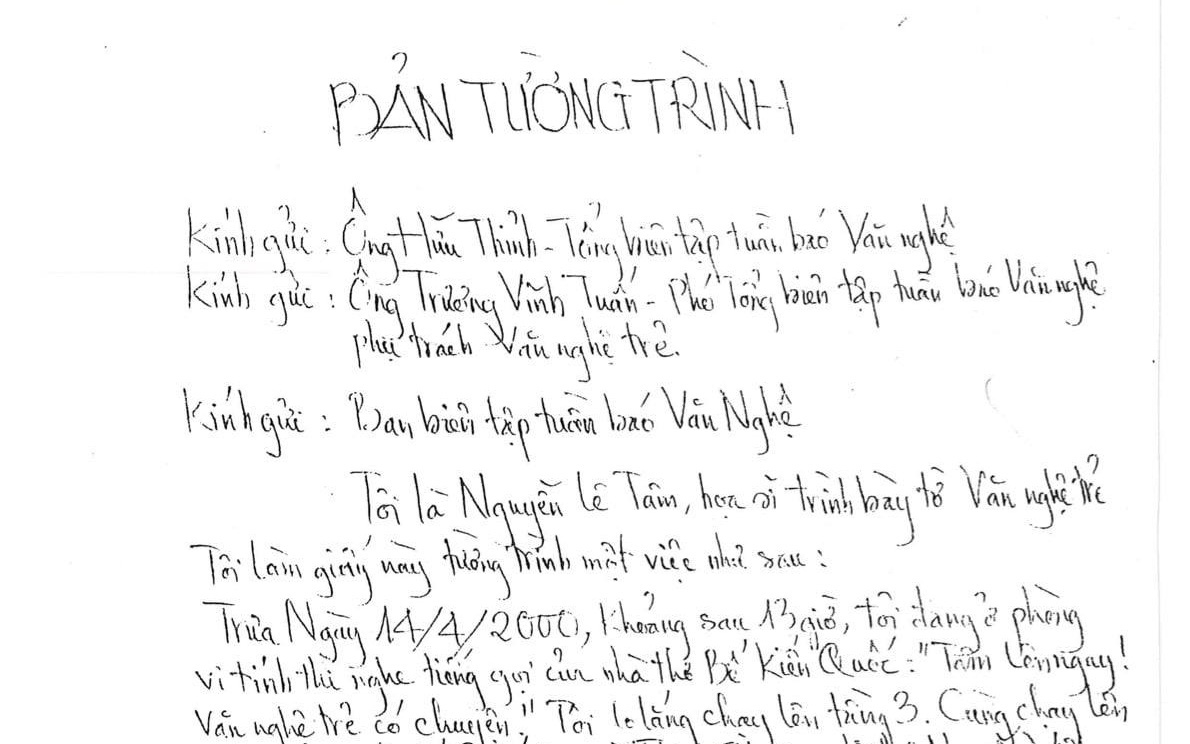 BẢN TƯỜNG TRÌNH
Kính gửi: Ông Hữu Thỉnh - Tổng biên tập tuần báo Văn nghệ
Kính gửi: Ông Trương Vĩnh Tuấn - Phó Tổng biên tập tuần báo Văn nghệ
phụ trách Văn nghệ trẻ.
Kính gửi: Ban biên tập tuần báo Văn Nghệ
Tôi là Nguyễn Lê Tâm, họa sĩ trình bày tờ Văn nghệ trẻ
Tôi làm giấy này tường trình một việc như sau:
Trưa Ngày 14/4/2000, khoảng sau 13 giờ, tôi đang ở phòng
vi tính thì nghe tiếng gọi của nhà thơ Bế Kiến Quốc: "Tâm lên ngay!
Văn nghệ trẻ có chuyện!" Tôi lo lắng chạy lên tầng 3. Cùng chạy lên